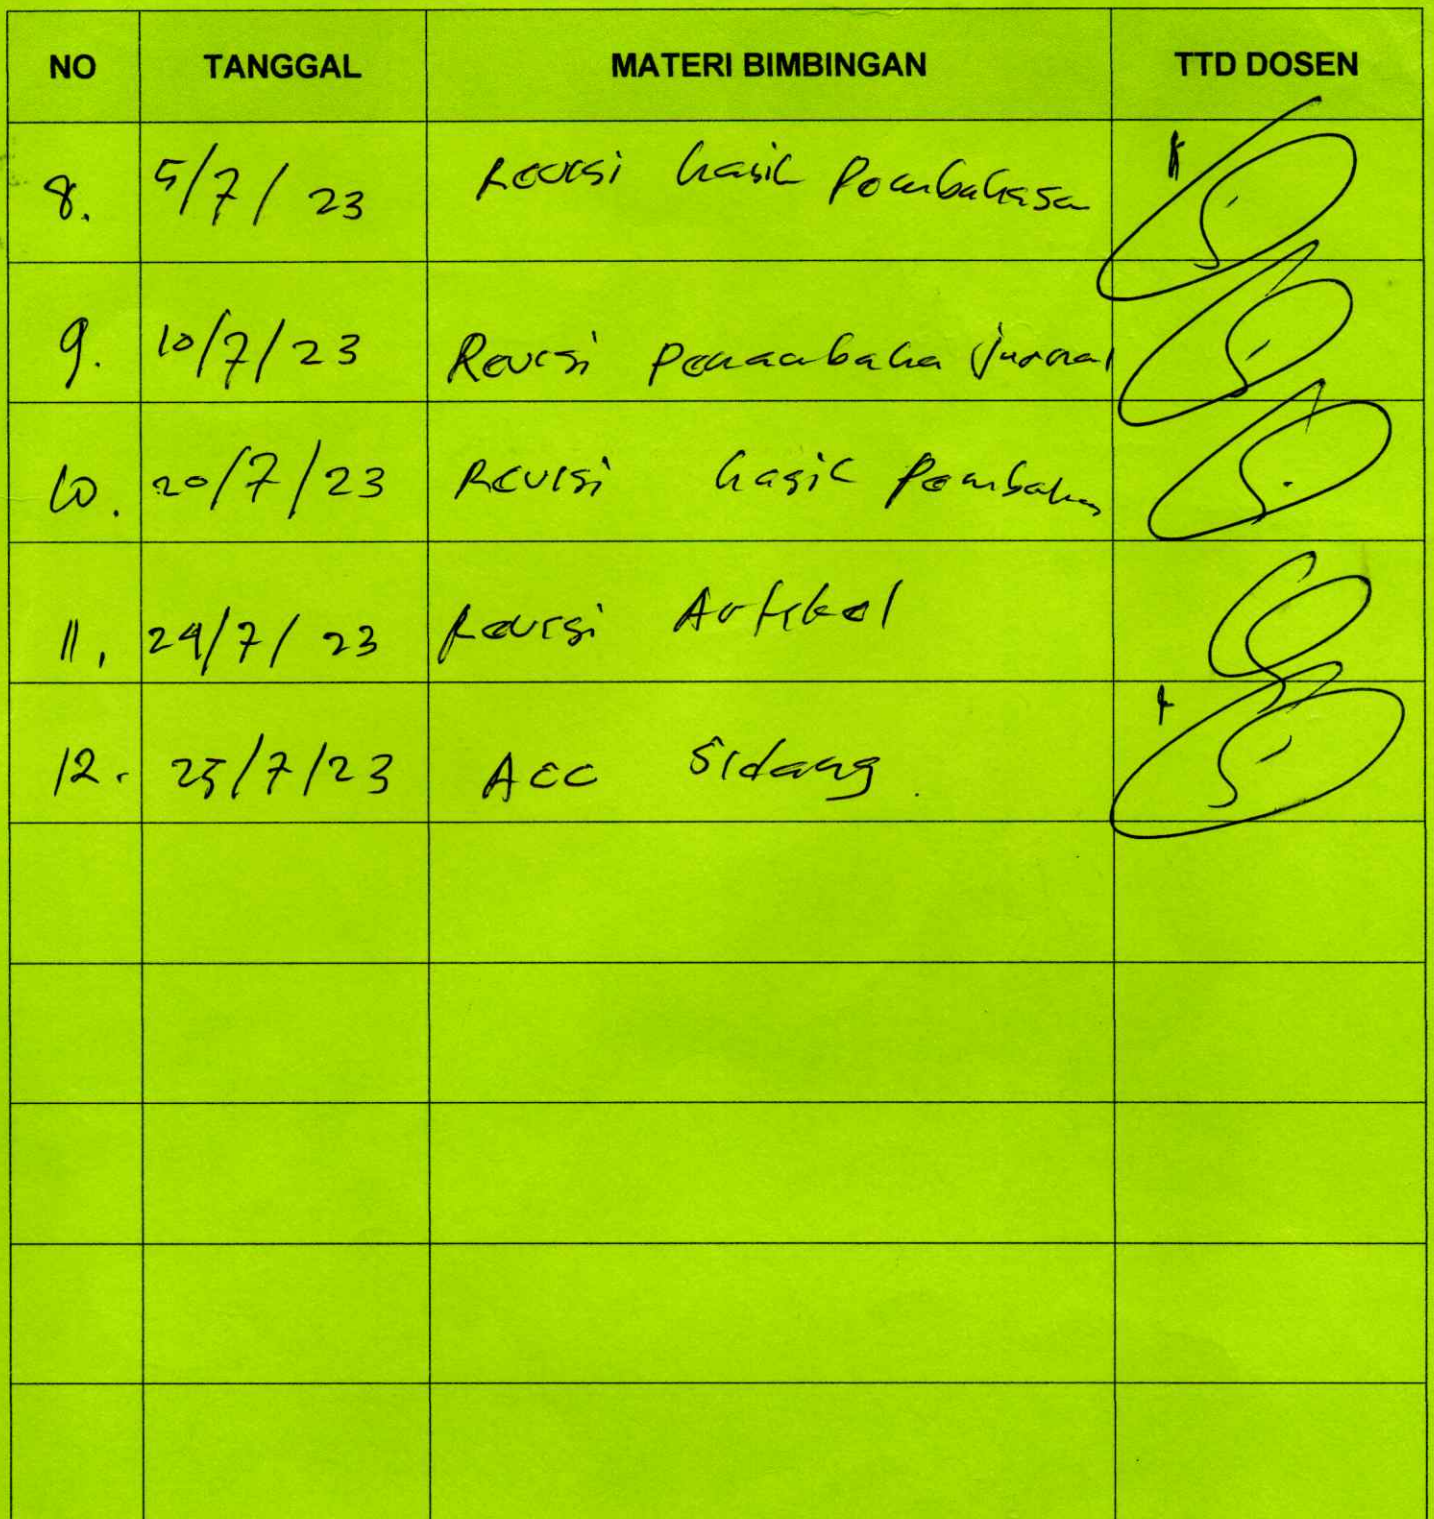 NO TANGGAL MATERI BIMBINGAN TTD DOSEN
8. 5/7/23 Revisi hasil Pembahasa
9. 10/7/23 Revisi Penambaha jurnal
10. 20/7/23 Revisi hasil Pembahas
11. 24/7/23 Revisi Artikel
12. 25/7/23 Acc Sidang.